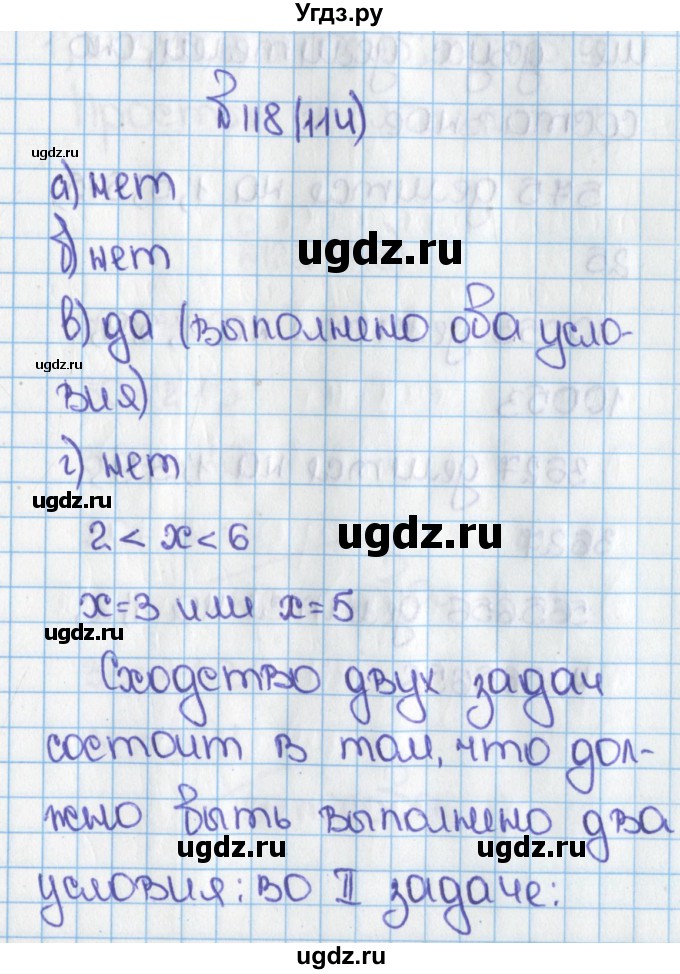 Угдз.ру
№118(114)
ugdz.ru
а) нет
б) нет
ugdz.ru
в) да (выполнено оба усло-
ugdz.ru
вия)
г) нет
ugdz.ru
2 < x < 6
ugdz.ru
x=3 или x=5
ugdz.ru
Сходство двух задач
состоит в том, что дол-
жно быть выполнено два
ugdz.ru
ugdz.ru
условия: во II задаче:
ugdz.ru